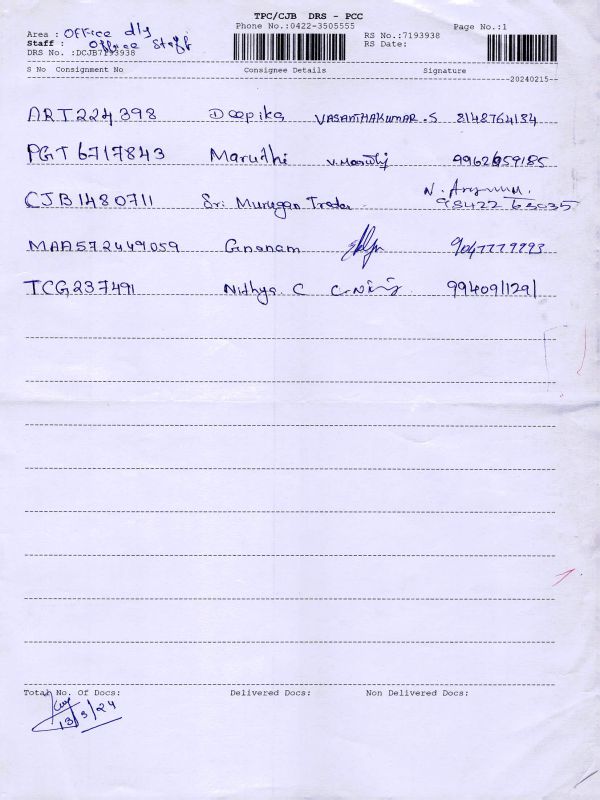 TPC/CJB DRS - PCC
Phone No.:0422-3505555 Page No.:1
Area : Office dly RS No.:7193938
Staff : Office Staff RS Date:
DRS No. :DCJB7193938
S No Consignment No Consignee Details Signature
20240215
ART224398 Deepika VASANTHAKUMAR.S 8148764184
PGT6717843 Maruthi 9962959185
CJB1480711 Sri Murugan Trader 98422 65035
MAA572449059 Gnanam 9047779293
TCG237491 Nithya C 9940911291
Total No. Of Docs: Delivered Docs: Non Delivered Docs:
13/3/24